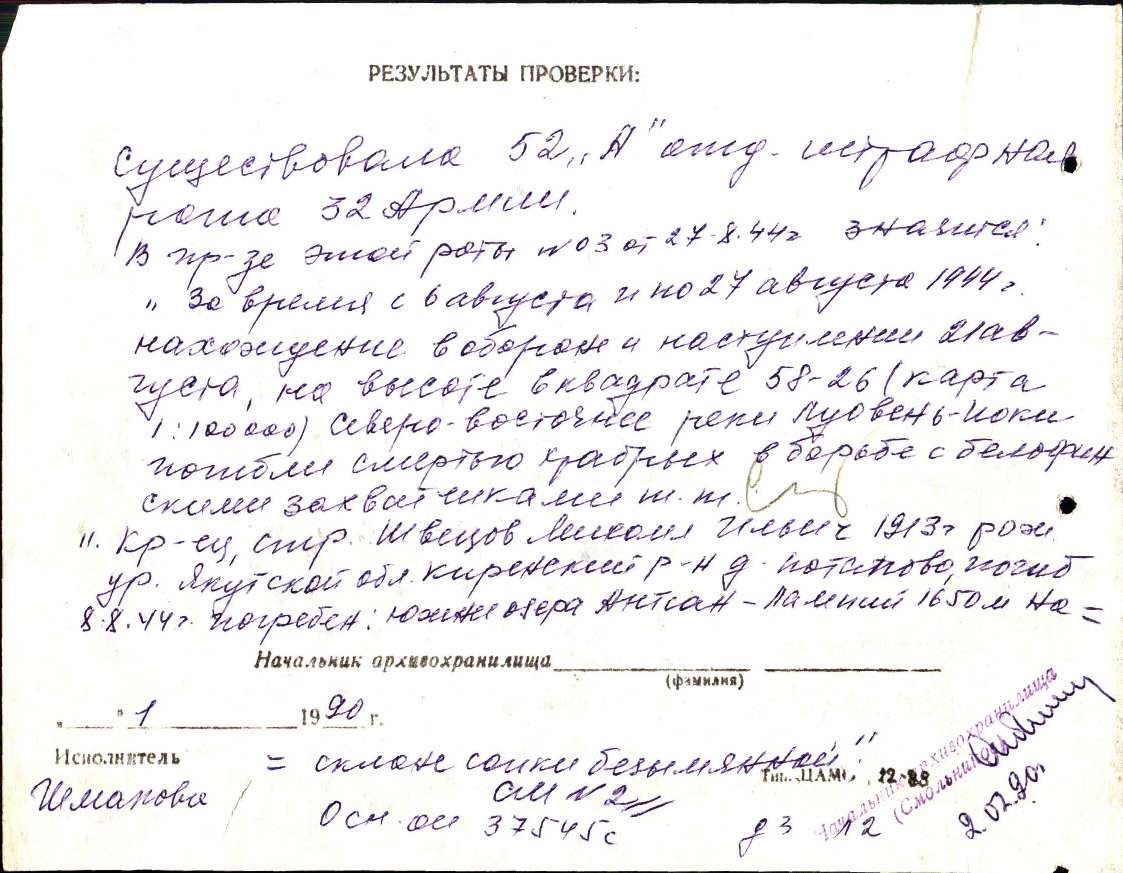 РЕЗУЛЬТАТЫ ПРОВЕРКИ:
Существовала 52 „А" отд. штрафная
рота 32 Армии.
В пр-зе этой роты № 03 от 27.8.44г значится:
„За время с 6 августа и по 27 августа 1944 г.
нахождение в оборон и наступлении 21 ав-
густа, на высоте в квадрате 58-26 (карта
1:100000) Северо-восточнее реки Луовень-йоки
погибли смертью храбрых в борьбе с белофин
скими захватчиками т.т.
11. Кр-ец, стр. Швецов Михаил Ильич 1913г рожд
ур. Якутской обл. Киренский р-н д. Потапово, погиб
8.8.44г. погребен: южнее озера -Лампи 1650м на =
Начальник архивохранилища
(фамилия)
„ " 1 1990 г.
Исполнитель
= склоне сопки безымянной"
Тип. ЦАМО 12-88
Шмакова
СМ № 2
Осн. оп 37545с д 3 л 2
Начальник архивохранилища
(Смольников)
2.02.90г